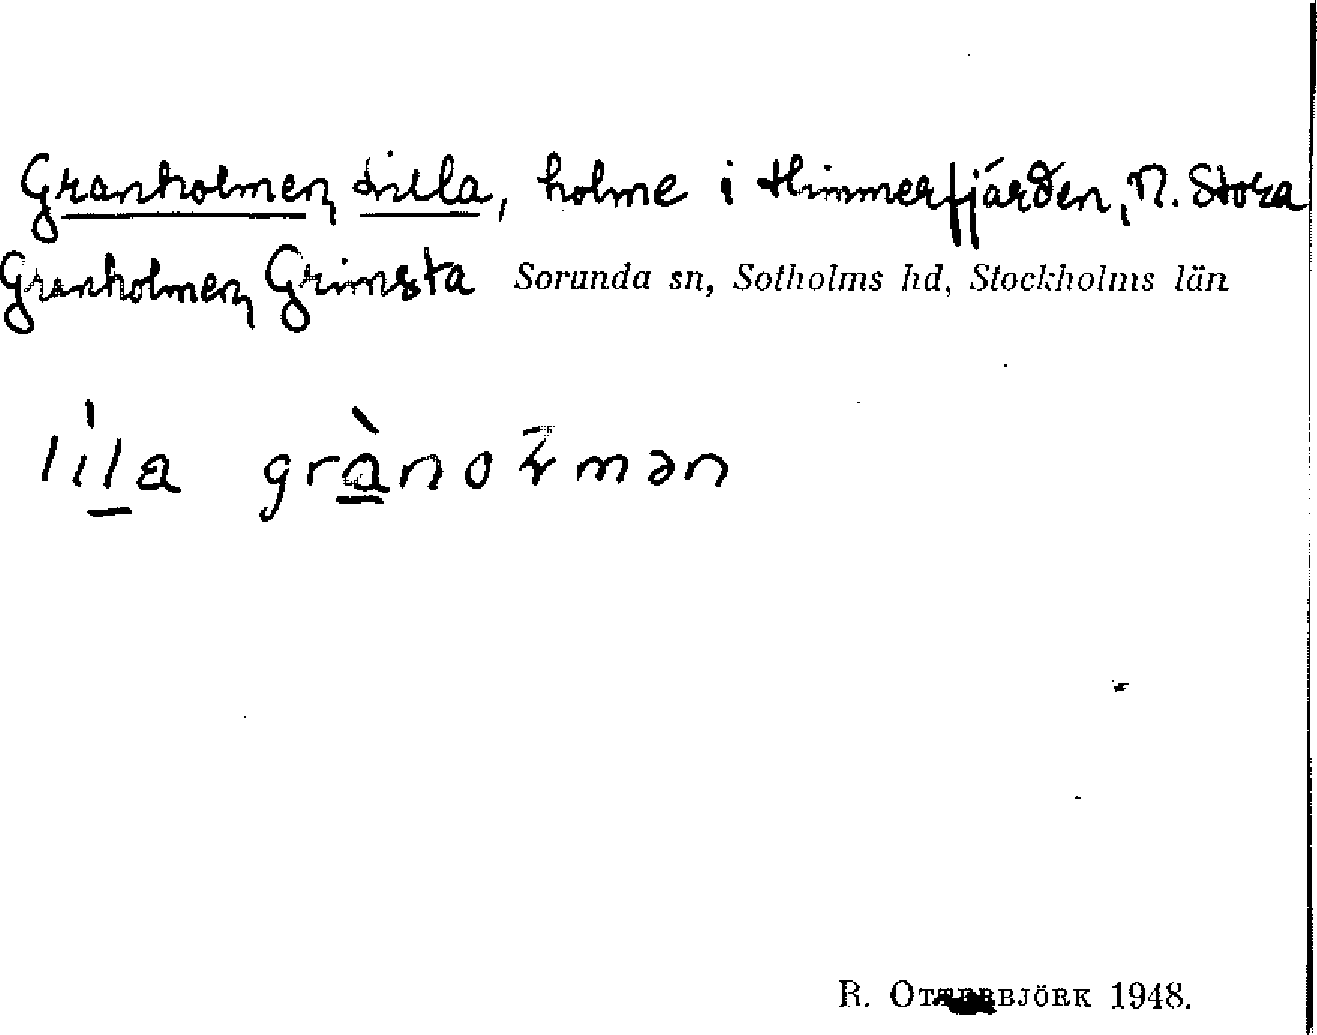 Granholmen, Lilla, holme i Himmerfjärden, N. Stora
Granholmen, Grimsta Sorunda sn, Sotholms hd, Stockholms län
lìla grànoɫmən
R. Otterbjörk 1948.